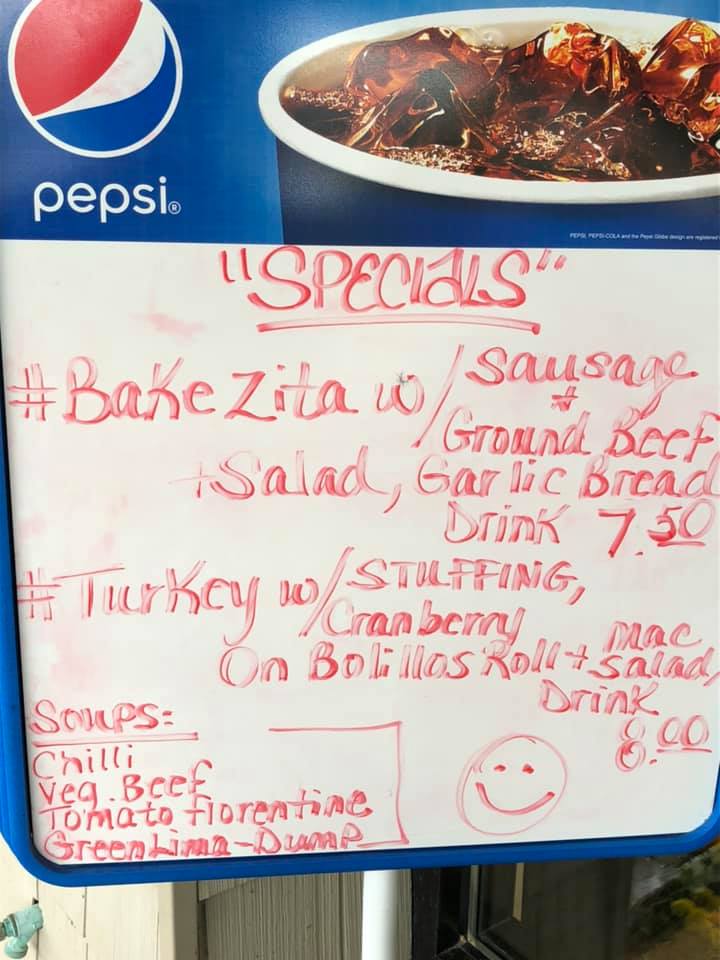 pepsi®
PEPSI, PEPSI-COLA and the Pepsi Globe design are registered
"SPECIALS"
#Bake Zita w/ Sausage
+
Ground Beef
+Salad, Garlic Bread
Drink 7.50
#Turkey w/ STUFFING,
Cranberry
On Bolillos Roll + Mac Salad,
Drink
8.00
Soups:
Chilli
Veg. Beef
Tomato florentine
Green Lima-Dump